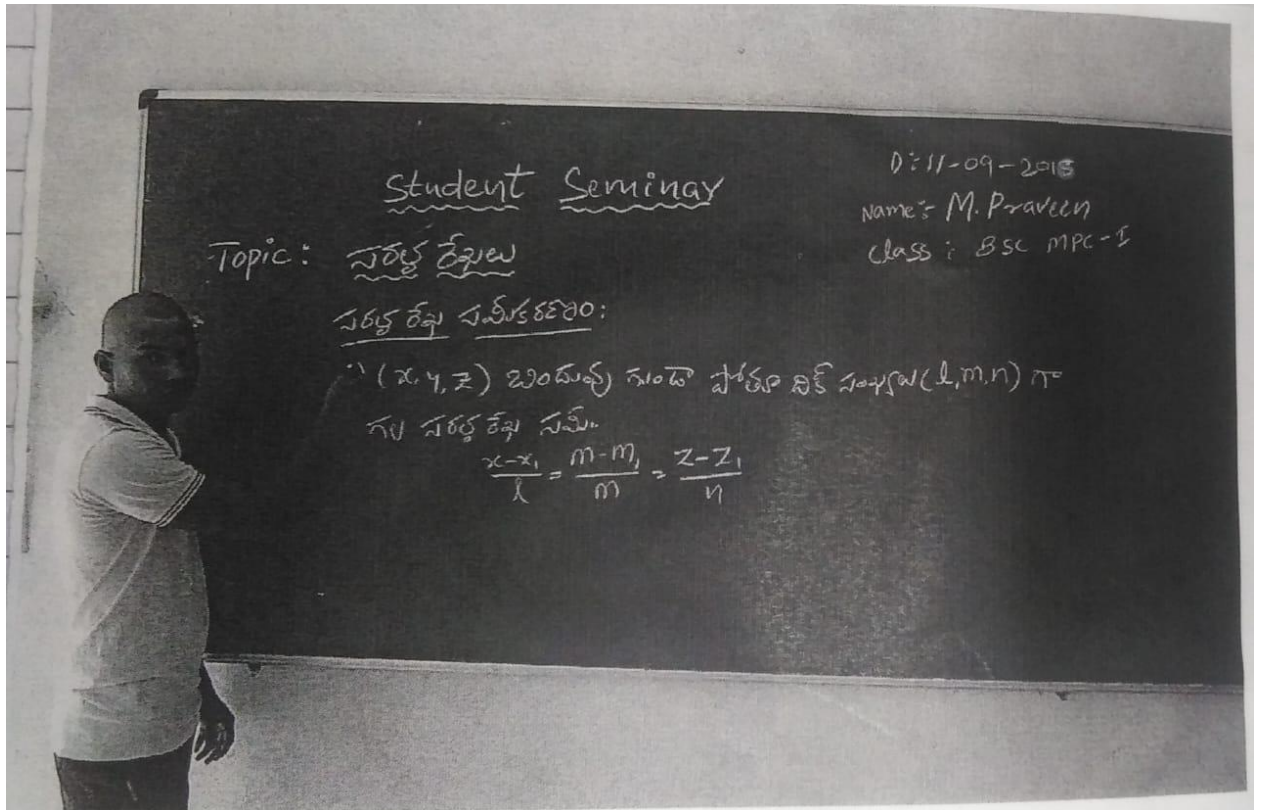 Student Seminar
D: 11-09-2018
Name:- M. Praveen
Class: BSC MPC-I
Topic: సరళ రేఖలు
సరళ రేఖ సమీకరణం:
(x, y, z) బిందువు గుండా పోతూ దిక్ సంఖ్యలు (l, m, n) గా
గల సరళ రేఖ సమీ.
x-x₁/l = m-m₁/m = z-z₁/n